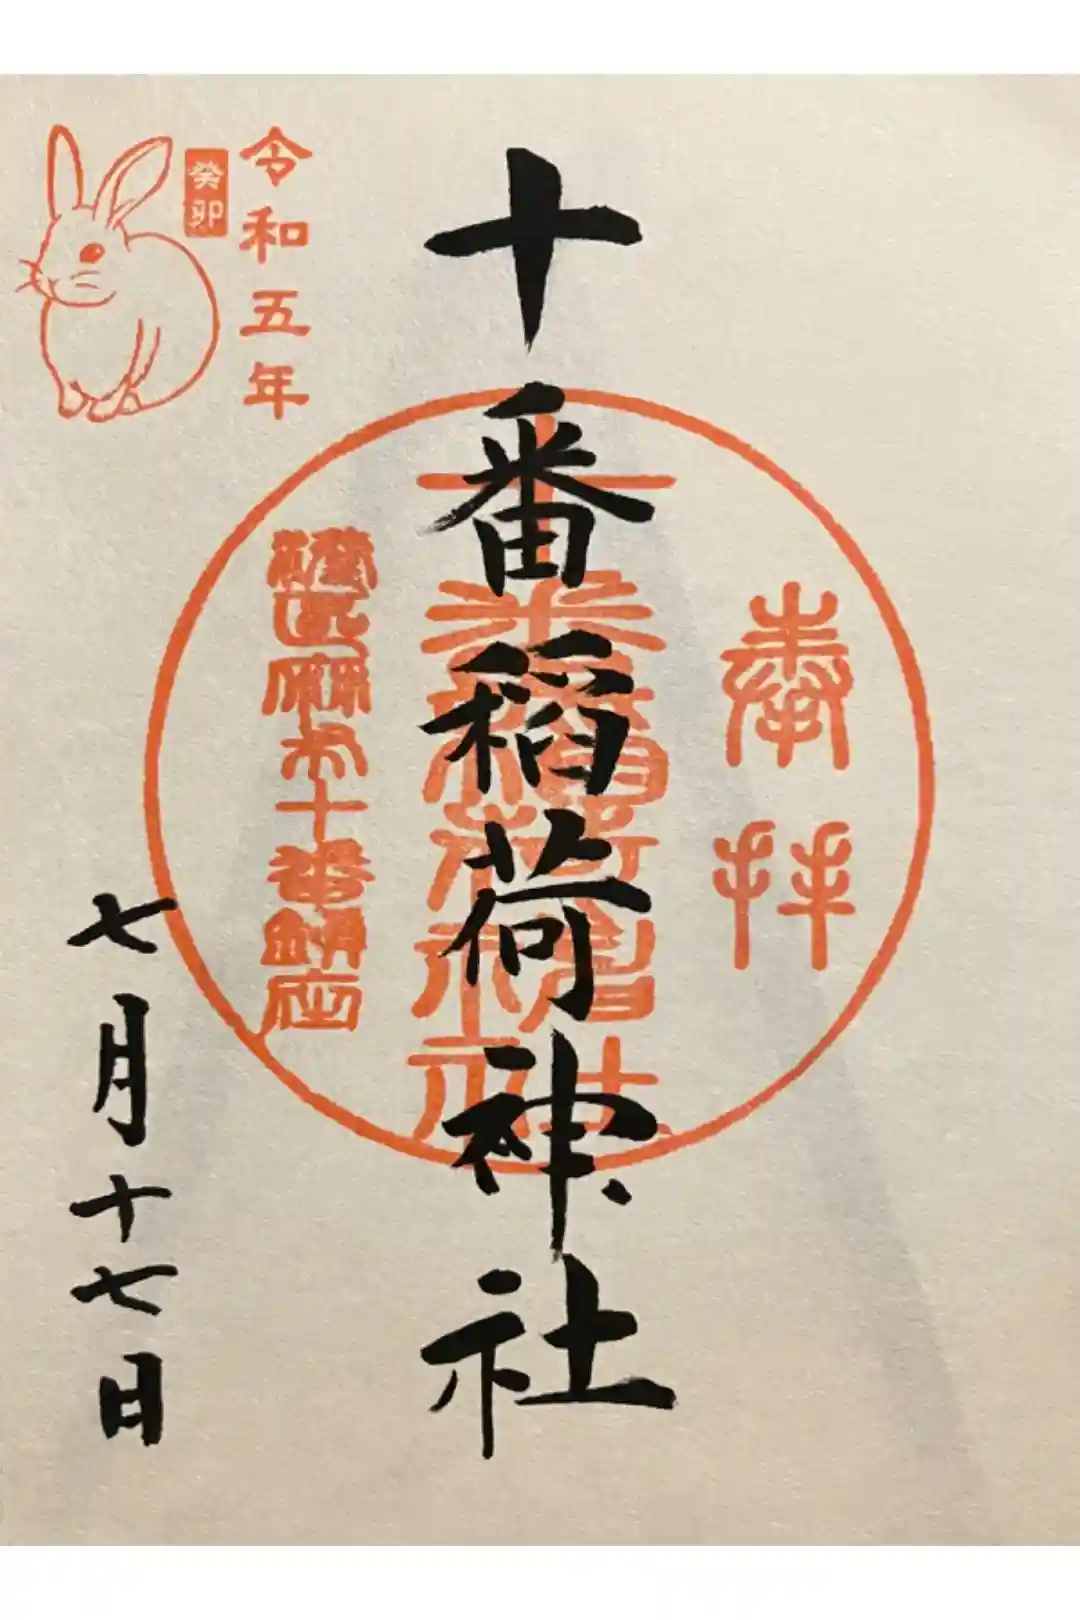 奉拝
十番稲荷神社
港区麻布十番鎮座
令和五年
癸卯
七月十七日